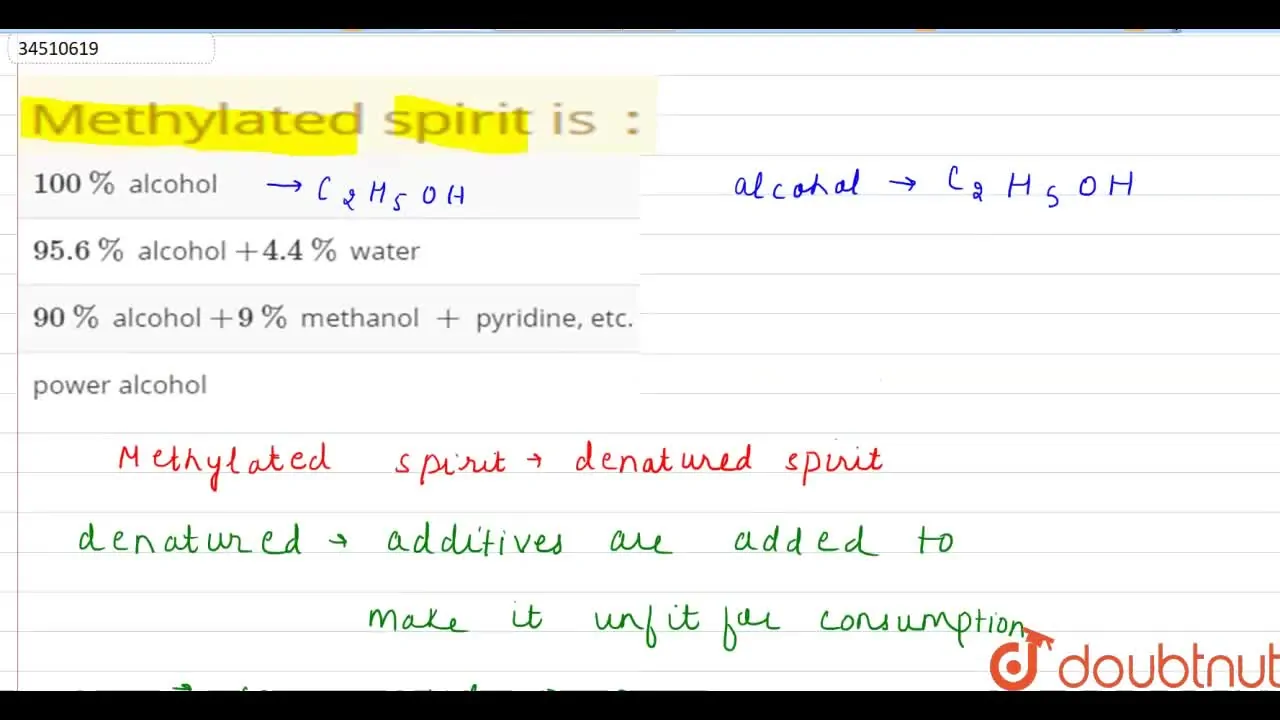 34510619
Methylated spirit is :
100 % alcohol → C2H5OH
alcohol → C2H5OH
95.6 % alcohol +4.4 % water
90 % alcohol +9 % methanol + pyridine, etc.
power alcohol
Methylated spirit → denatured spirit
denatured → additives are added to
make it unfit for consumption
doubtnut